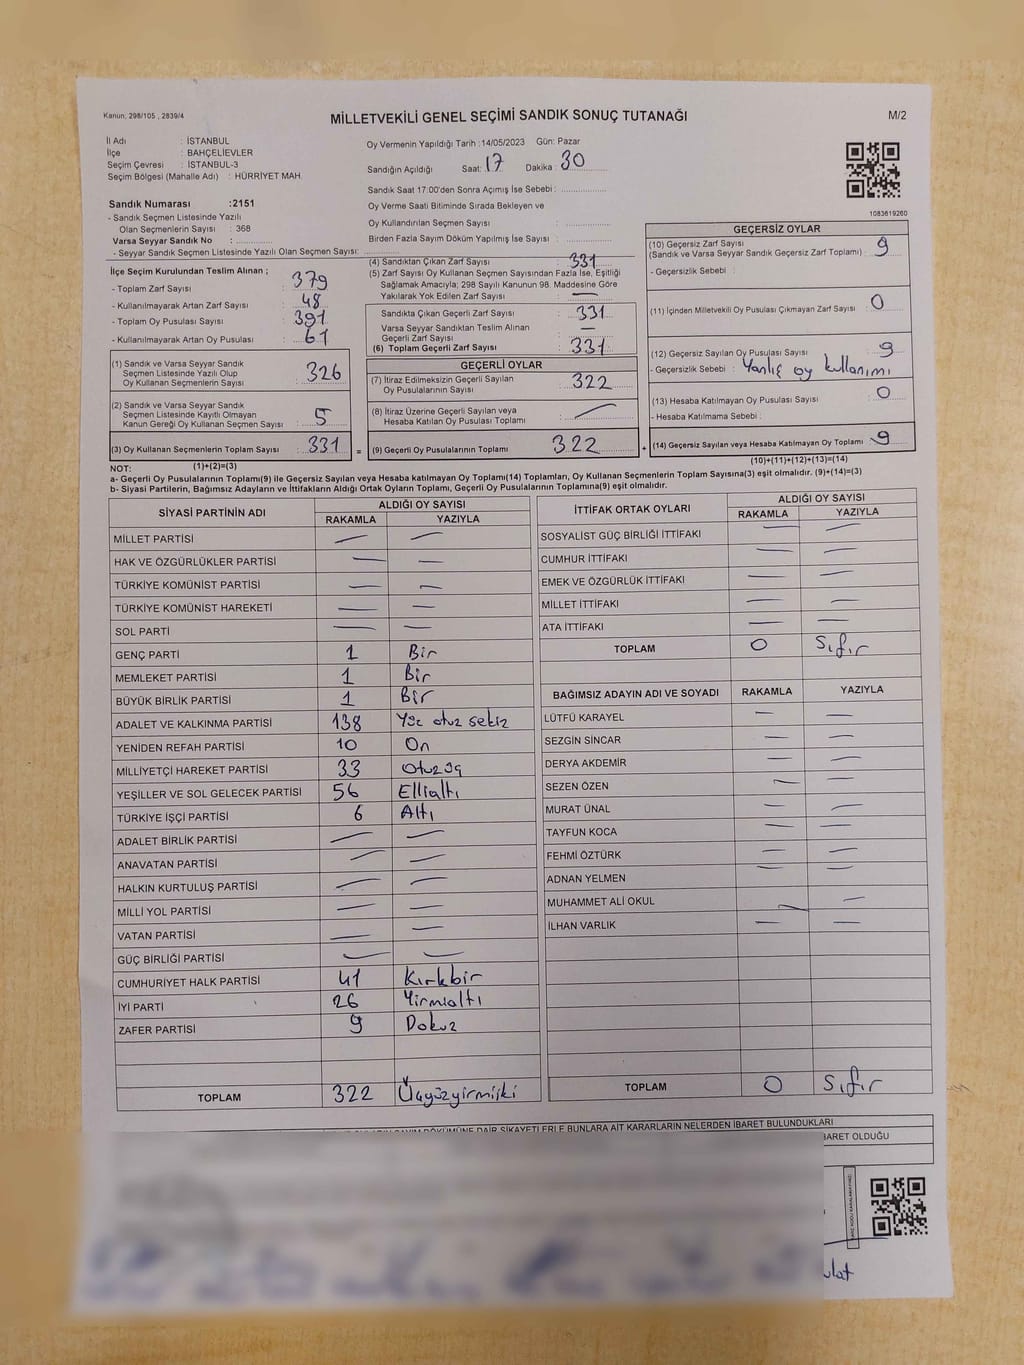 Kanun, 298/105 , 2839/4
MİLLETVEKİLİ GENEL SEÇİMİ SANDIK SONUÇ TUTANAĞI
M/2
İl Adı : İSTANBUL
İlçe : BAHÇELİEVLER
Seçim Çevresi : İSTANBUL-3
Seçim Bölgesi (Mahalle Adı) : HÜRRİYET MAH.
Sandık Numarası :2151
- Sandık Seçmen Listesinde Yazılı
Olan Seçmenlerin Sayısı : 368
Varsa Seyyar Sandık No : ..............
- Seyyar Sandık Seçmen Listesinde Yazılı Olan Seçmen Sayısı: ..............
Oy Vermenin Yapıldığı Tarih :14/05/2023 Gün: Pazar
Sandığın Açıldığı Saat: 17 Dakika : 30
Sandık Saat 17:00'den Sonra Açımış İse Sebebi : ..............
Oy Verme Saati Bitiminde Sırada Bekleyen ve
Oy Kullandırılan Seçmen Sayısı : ..............
Birden Fazla Sayım Döküm Yapılmış İse Sayısı : ..............
1083619260
İlçe Seçim Kurulundan Teslim Alınan ;
- Toplam Zarf Sayısı : 379
- Kullanılmayarak Artan Zarf Sayısı : 48
- Toplam Oy Pusulası Sayısı : 391
- Kullanılmayarak Artan Oy Pusulası : 61
(1) Sandık ve Varsa Seyyar Sandık
Seçmen Listesinde Yazılı Olup
Oy Kullanan Seçmenlerin Sayısı : 326
(2) Sandık ve Varsa Seyyar Sandık
Seçmen Listesinde Kayıtlı Olmayan
Kanun Gereği Oy Kullanan Seçmen Sayısı : 5
(3) Oy Kullanan Seçmenlerin Toplam Sayısı : 331
(1)+(2)=(3)
(4) Sandıktan Çıkan Zarf Sayısı : 331
(5) Zarf Sayısı Oy Kullanan Seçmen Sayısından Fazla İse, Eşitliği
Sağlamak Amacıyla; 298 Sayılı Kanunun 98. Maddesine Göre
Yakılarak Yok Edilen Zarf Sayısı : —
Sandıkta Çıkan Geçerli Zarf Sayısı : 331
Varsa Seyyar Sandıktan Teslim Alınan
Geçerli Zarf Sayısı : —
(6) Toplam Geçerli Zarf Sayısı : 331
GEÇERLİ OYLAR
(7) İtiraz Edilmeksizin Geçerli Sayılan
Oy Pusulalarının Sayısı : 322
(8) İtiraz Üzerine Geçerli Sayılan veya
Hesaba Katılan Oy Pusulaları Toplamı : —
= (9) Geçerli Oy Pusulalarının Toplamı : 322
GEÇERSİZ OYLAR
(10) Geçersiz Zarf Sayısı : 9
(Sandık ve Varsa Seyyar Sandık Geçersiz Zarf Toplamı)
- Geçersizlik Sebebi :
(11) İçinden Milletvekili Oy Pusulası Çıkmayan Zarf Sayısı : 0
(12) Geçersiz Sayılan Oy Pusulası Sayısı : 9
- Geçersizlik Sebebi : Yanlış oy kullanımı
(13) Hesaba Katılmayan Oy Pusulası Sayısı : 0
- Hesaba Katılmama Sebebi :
+ (14) Geçersiz Sayılan veya Hesaba Katılmayan Oy Toplamı : 9
(10)+(11)+(12)+(13)=(14)
NOT:
a- Geçerli Oy Pusulalarının Toplamı(9) ile Geçersiz Sayılan veya Hesaba katılmayan Oy Toplamı(14) Toplamları, Oy Kullanan Seçmenlerin Toplam Sayısına(3) eşit olmalıdır. (9)+(14)=(3)
b- Siyasi Partilerin, Bağımsız Adayların ve İttifakların Aldığı Ortak Oyların Toplamı, Geçerli Oy Pusulalarının Toplamına(9) eşit olmalıdır.
SİYASİ PARTİNİN ADI ALDIĞI OY SAYISI
RAKAMLA YAZIYLA
MİLLET PARTİSİ — —
HAK VE ÖZGÜRLÜKLER PARTİSİ — —
TÜRKİYE KOMÜNİST PARTİSİ — —
TÜRKİYE KOMÜNİST HAREKETİ — —
SOL PARTİ — —
GENÇ PARTİ 1 Bir
MEMLEKET PARTİSİ 1 Bir
BÜYÜK BİRLİK PARTİSİ 1 Bir
ADALET VE KALKINMA PARTİSİ 138 Yüz otuz sekiz
YENİDEN REFAH PARTİSİ 10 On
MİLLİYETÇİ HAREKET PARTİSİ 33 Otuz üç
YEŞİLLER VE SOL GELECEK PARTİSİ 56 Ellialtı
TÜRKİYE İŞÇİ PARTİSİ 6 Altı
ADALET BİRLİK PARTİSİ — —
ANAVATAN PARTİSİ — —
HALKIN KURTULUŞ PARTİSİ — —
MİLLİ YOL PARTİSİ — —
VATAN PARTİSİ — —
GÜÇ BİRLİĞİ PARTİSİ — —
CUMHURİYET HALK PARTİSİ 41 Kırkbir
İYİ PARTİ 26 Yirmialtı
ZAFER PARTİSİ 9 Dokuz
TOPLAM 322 Üçyüzyirmiiki
İTTİFAK ORTAK OYLARI ALDIĞI OY SAYISI
RAKAMLA YAZIYLA
SOSYALİST GÜÇ BİRLİĞİ İTTİFAKI — —
CUMHUR İTTİFAKI — —
EMEK VE ÖZGÜRLÜK İTTİFAKI — —
MİLLET İTTİFAKI — —
ATA İTTİFAKI — —
TOPLAM 0 Sıfır
BAĞIMSIZ ADAYIN ADI VE SOYADI RAKAMLA YAZIYLA
LÜTFÜ KARAYEL — —
SEZGİN SİNCAR — —
DERYA AKDEMİR — —
SEZEN ÖZEN — —
MURAT ÜNAL — —
TAYFUN KOCA — —
FEHMİ ÖZTÜRK — —
ADNAN YELMEN — —
MUHAMMET ALİ OKUL — —
İLHAN VARLIK — —
TOPLAM 0 Sıfır
DÖKÜMÜNE DAİR ŞİKAYETLERLE BUNLARA AİT KARARLARIN NELERDEN İBARET BULUNDUKLARI
BARET OLDUĞU